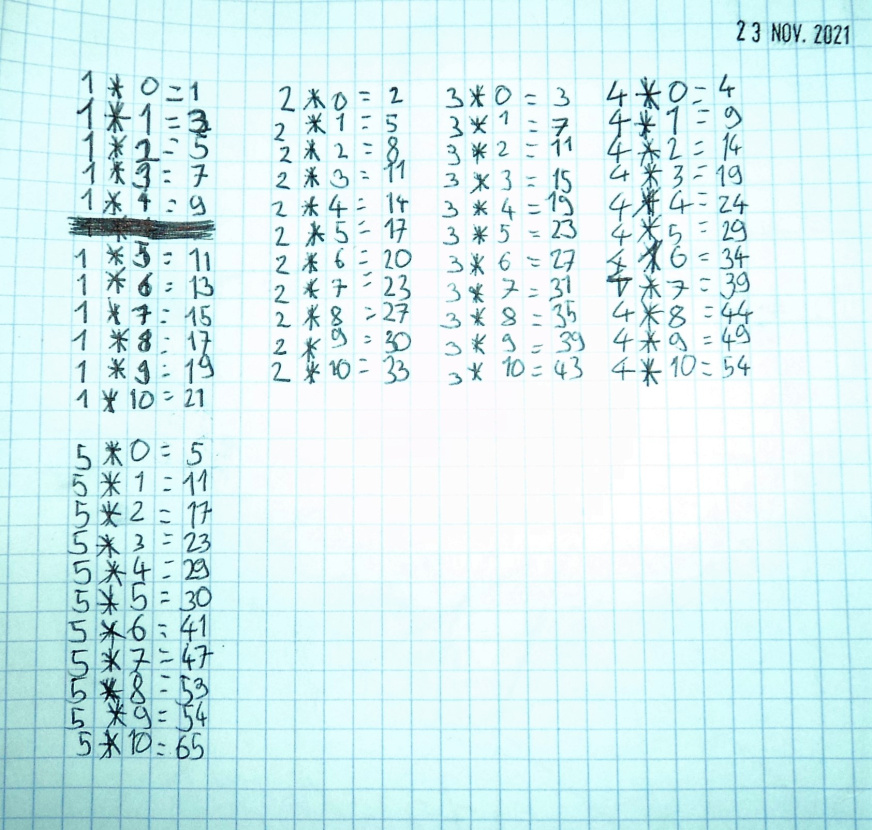 23 NOV. 2021
1 * 0 = 1
1 * 1 = 3
1 * 2 = 5
1 * 3 = 7
1 * 4 = 9
1 * 5 = 11
1 * 6 = 13
1 * 7 = 15
1 * 8 = 17
1 * 9 = 19
1 * 10 = 21
2 * 0 = 2
2 * 1 = 5
2 * 2 = 8
2 * 3 = 11
2 * 4 = 14
2 * 5 = 17
2 * 6 = 20
2 * 7 = 23
2 * 8 = 27
2 * 9 = 30
2 * 10 = 33
3 * 0 = 3
3 * 1 = 7
3 * 2 = 11
3 * 3 = 15
3 * 4 = 19
3 * 5 = 23
3 * 6 = 27
3 * 7 = 31
3 * 8 = 35
3 * 9 = 39
3 * 10 = 43
4 * 0 = 4
4 * 1 = 9
4 * 2 = 14
4 * 3 = 19
4 * 4 = 24
4 * 5 = 29
4 * 6 = 34
4 * 7 = 39
4 * 8 = 44
4 * 9 = 49
4 * 10 = 54
5 * 0 = 5
5 * 1 = 11
5 * 2 = 17
5 * 3 = 23
5 * 4 = 29
5 * 5 = 30
5 * 6 = 41
5 * 7 = 47
5 * 8 = 53
5 * 9 = 54
5 * 10 = 65